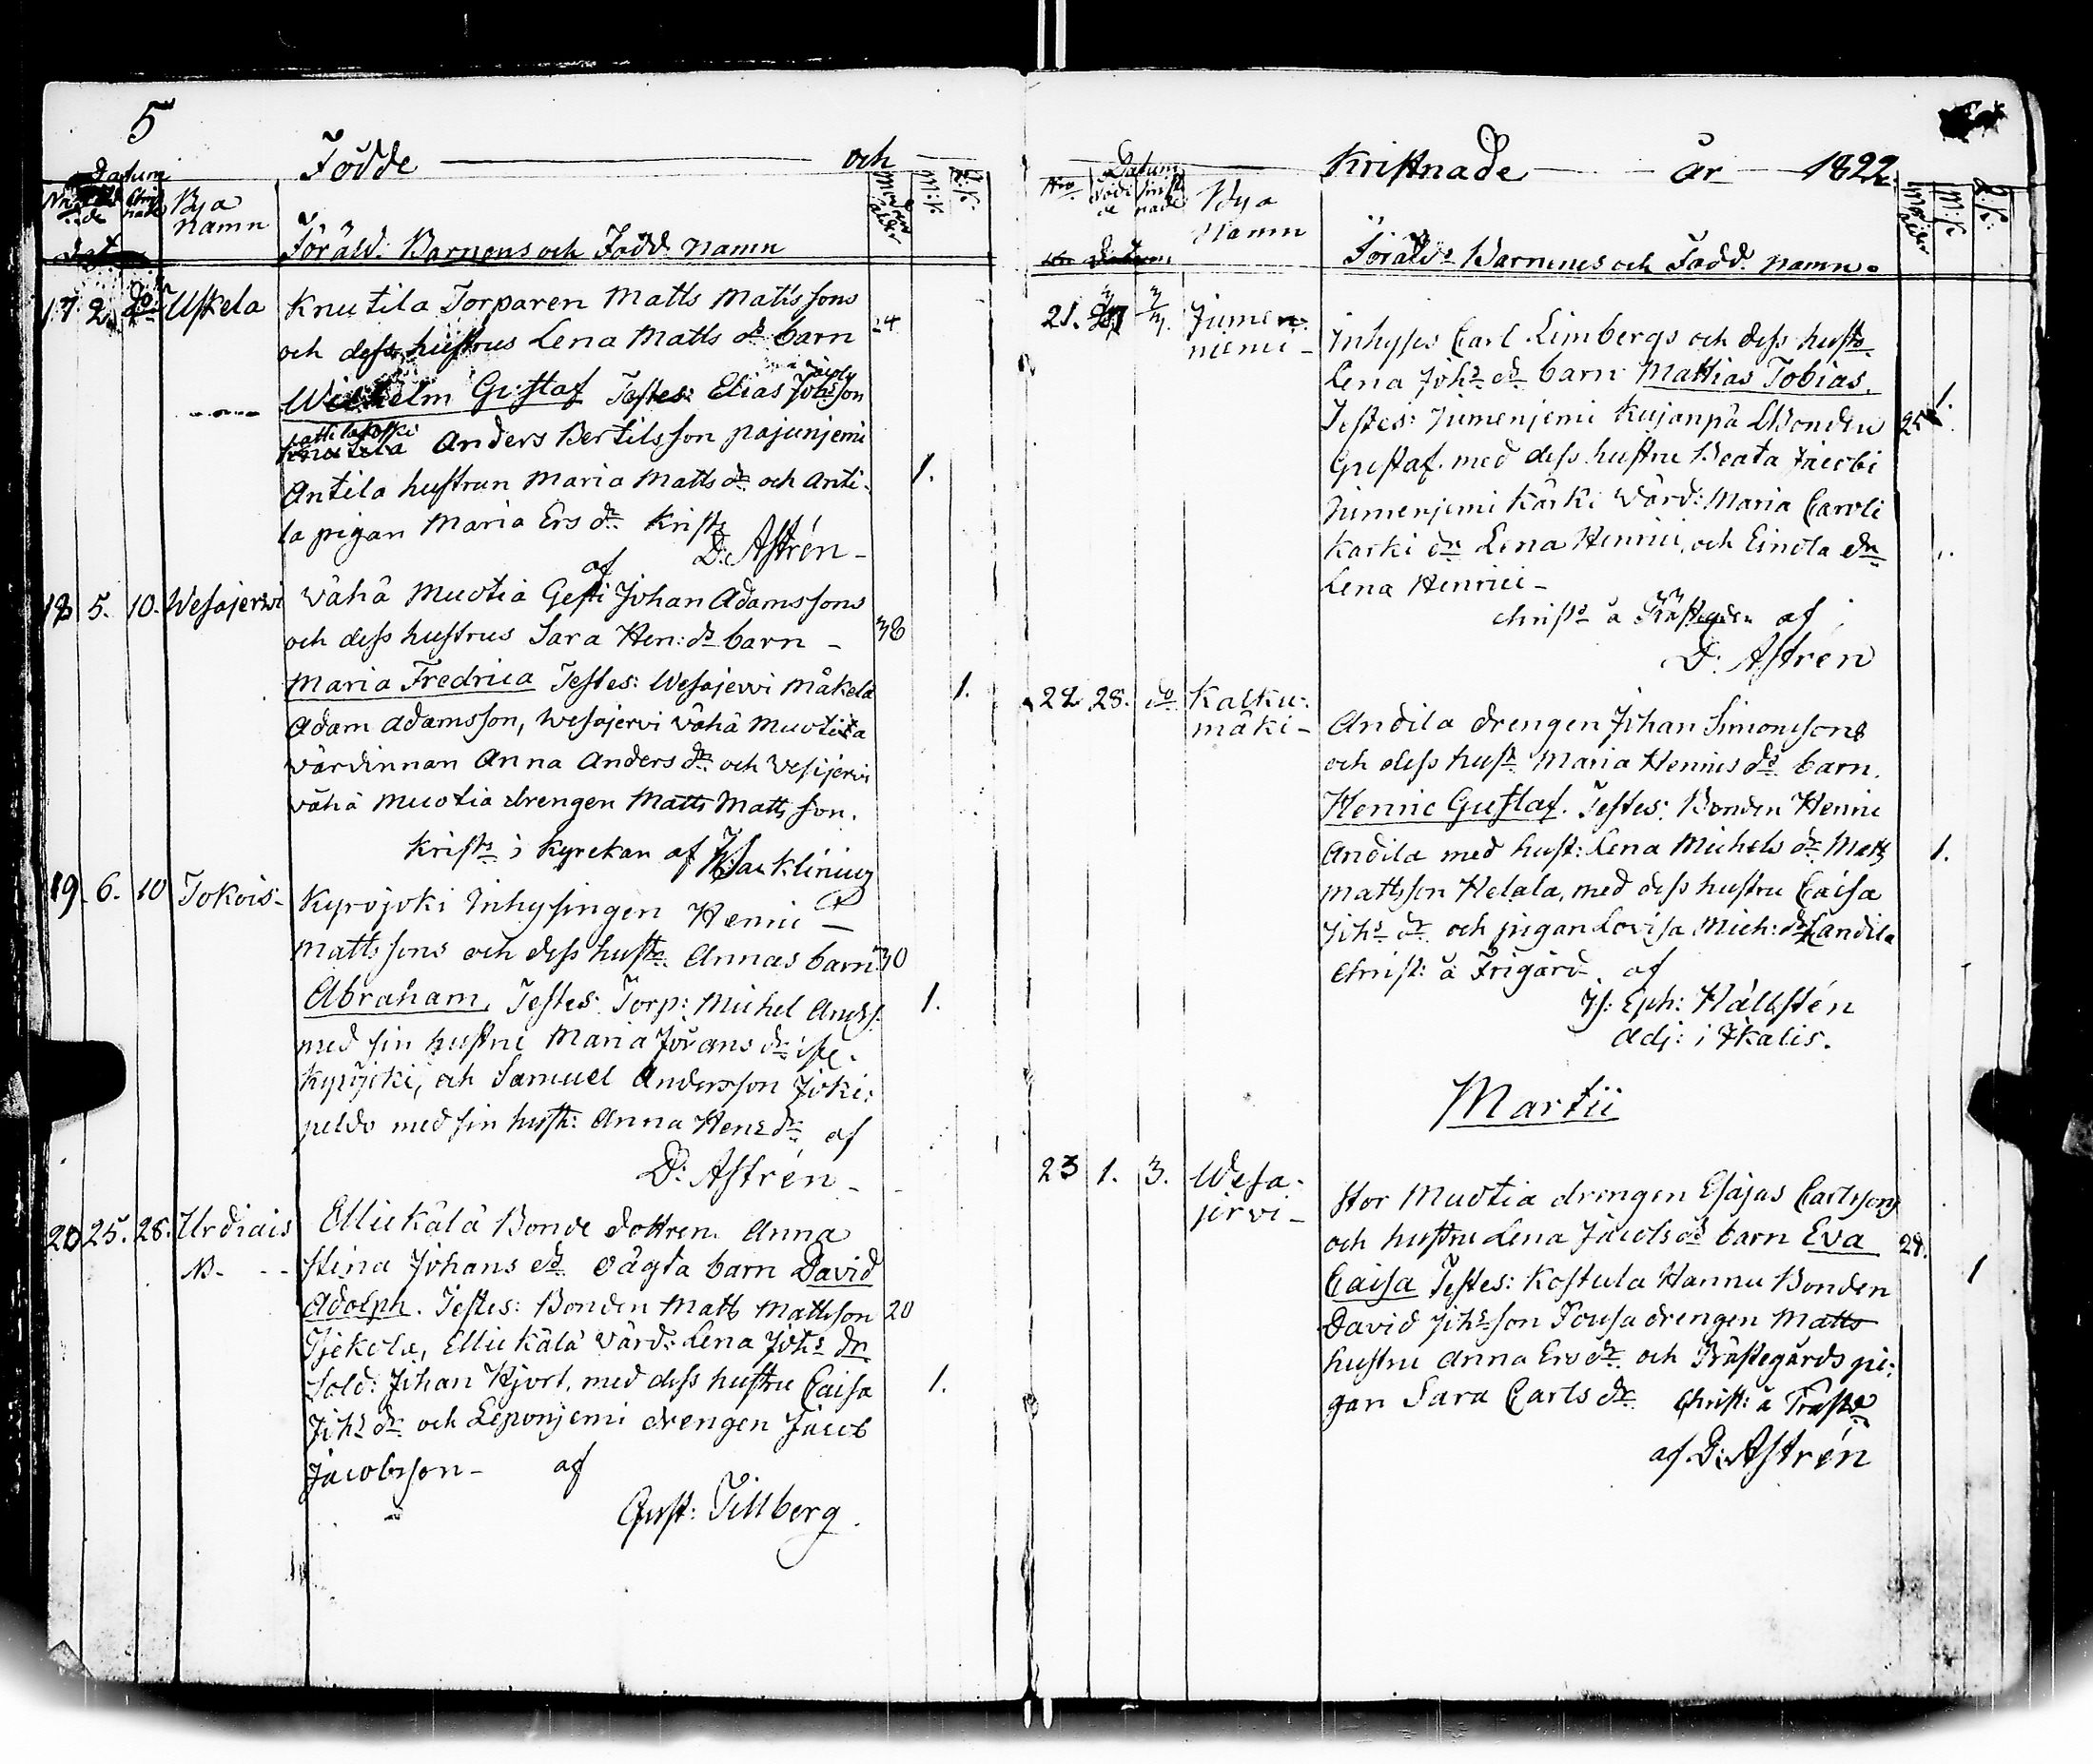 5
Födde och
Datum
Bya namn
Föräld: Barnens och Fadd. namn
M:K:
Q:K:
17 2 do Uskela Knutila Torparen Matts Mattssons
och dess hustrus Lena Matts dr barn 24
Wilhelm Gustaf Testes: Elias Johsson
Anders Bertilsson pajunjemi
Antila hustrun Maria Matts dr och Anti- 1.
la pigan Maria Ers dr Kristn
af D: Astrén -
18 5. 10. Wesajerwi Wähä Muotia Gesti Johan Adamssons
och dess hustrus Sara Hen: ds barn - 38
Maria Fredrica Testes: Wesajerwi Mäkelä 1.
Adam Adamsson, Wesajerwi Wähä Muotia
wärdinnan Anna Anders dr och Wesijerwi
wähä Muotia drengen Matts Mattsson.
Kristn i Kyrckan af
19 6. 10 Tokois- Kyrojoki Inhysingen Henric
Mattssons och dess hustr. Annas barn 30
Abraham, Testes: Torp: Michel Anders. 1.
med sin hustru Maria Jörans dr
Kyrojoki, och Samuel Andersson Joki-
peldo med sin hustr: Anna Hens dr af
D: Astrén -
20 25. 28. Urdiais Ellie Kälä Bonde dottren Anna
NB - - Stina Johans ds oägta barn David
Adolph. Testes: Bonden Matts Mattsson 20
Ijekola, Ellie Kälä Wärd: Lena Johs dr
Sold: Johan Hjort, med dess hustru Caisa 1.
Johs dr och Leponjemi drengen Jacob
Jacobsson - af
Gust: Tillberg.
Kristnade år 1822.
Nro Datum
Bya Namn
Föräld: Barnens och Fadd. namn.
M:K:
Q:K:
21. Jumen-
niemi - Inhyses Carl Limbergs och dess hustr.
Lena Johs ds barn Mathias Tobias. 1.
Testes: Jumenjemi Kujanpä Bonden
Gustaf med dess hustru Beata Jacobi
Jumenjemi Kärki Wärd: Maria Caroli
Karki dr Lena Henrici, och Einola dr
Lena Henrici -
christn å Prästgården af
D: Astrén
22 28. do Kalku-
mäki - Andila drengen Johan Simonssons
och dess hustr Maria Henrics ds barn.
Henric Gustaf. Testes: Bonden Henric
Andila med hust: Lena Michels dr Matts 1.
Mattsson Helala, med dess hustru Caisa
Johs dr och pigan Lovisa Mich: dr Landila
Christ: å Frigård af
Is: Eph: Hållstén
Adj: i Ikalis.
Martii
23 1. 3. Wesa-
jerwi - Stor Muotia drengen Esajas Carlssons
och hustru Lena Jacobs ds barn Eva 29.
Caisa Testes: Kostula Hannu Bonden 1
David Johsson Tousa drengen Matts
hustru Anna Ers dr och Prästegårds pi-
gan Sara Carls dr Christ: å Prästg
af D: Astrén